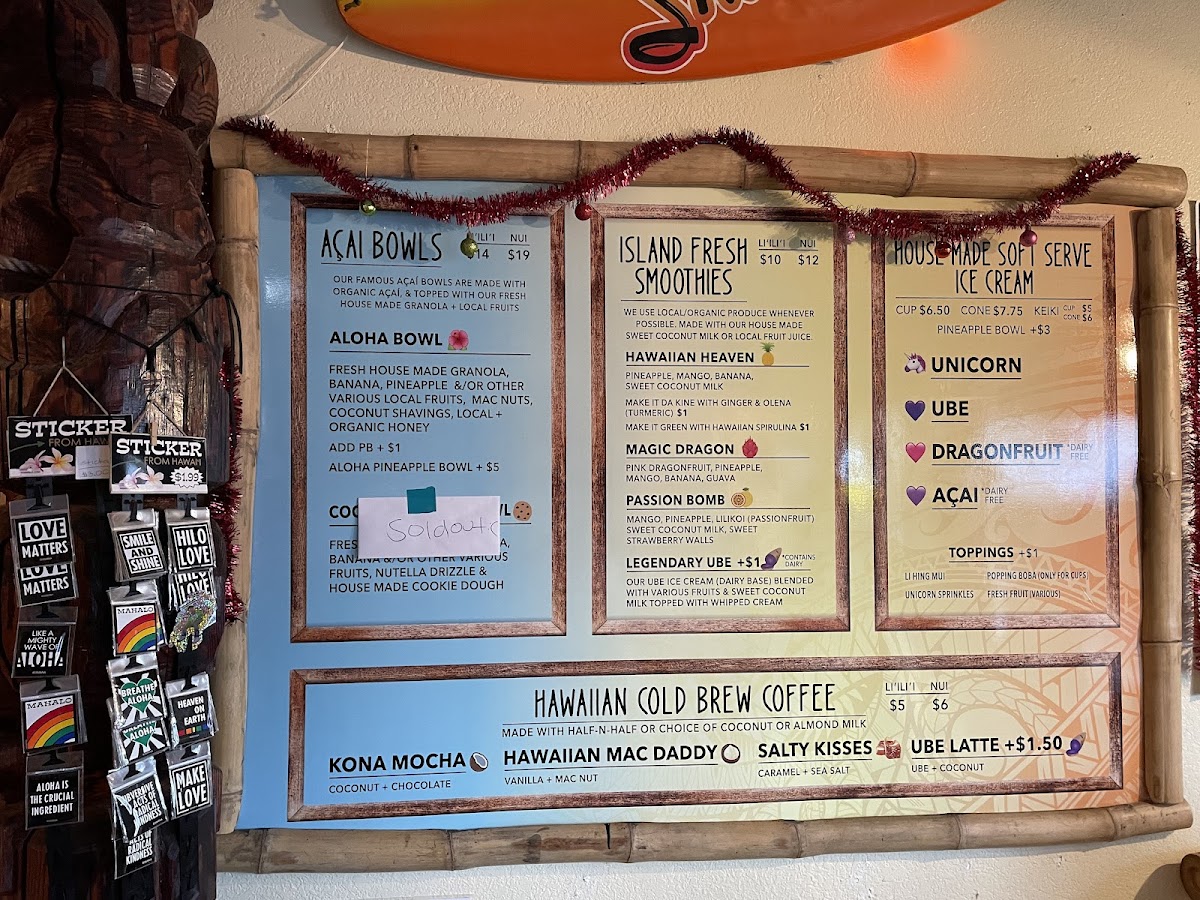 AÇAI BOWLS
LI'ILI'I NUI
$14 $19
OUR FAMOUS AÇAÍ BOWLS ARE MADE WITH
ORGANIC AÇAÍ, & TOPPED WITH OUR FRESH
HOUSE MADE GRANOLA + LOCAL FRUITS
ALOHA BOWL
FRESH HOUSE MADE GRANOLA,
BANANA, PINEAPPLE &/OR OTHER
VARIOUS LOCAL FRUITS, MAC NUTS,
COCONUT SHAVINGS, LOCAL +
ORGANIC HONEY
ADD PB + $1
ALOHA PINEAPPLE BOWL + $5
Soldout
BANANA &/OR OTHER VARIOUS
FRUITS, NUTELLA DRIZZLE &
HOUSE MADE COOKIE DOUGH
ISLAND FRESH
SMOOTHIES
LI'ILI'I NUI
$10 $12
WE USE LOCAL/ORGANIC PRODUCE WHENEVER
POSSIBLE. MADE WITH OUR HOUSE MADE
SWEET COCONUT MILK OR LOCAL FRUIT JUICE.
HAWAIIAN HEAVEN
PINEAPPLE, MANGO, BANANA,
SWEET COCONUT MILK
MAKE IT DA KINE WITH GINGER & OLENA
(TURMERIC) $1
MAKE IT GREEN WITH HAWAIIAN SPIRULINA $1
MAGIC DRAGON
PINK DRAGONFRUIT, PINEAPPLE,
MANGO, BANANA, GUAVA
PASSION BOMB
MANGO, PINEAPPLE, LILIKOI (PASSIONFRUIT)
SWEET COCONUT MILK, SWEET
STRAWBERRY WALLS
LEGENDARY UBE +$1 *CONTAINS DAIRY
OUR UBE ICE CREAM (DAIRY BASE) BLENDED
WITH VARIOUS FRUITS & SWEET COCONUT
MILK TOPPED WITH WHIPPED CREAM
HOUSE MADE SOFT SERVE
ICE CREAM
CUP $6.50 CONE $7.75 KEIKI CUP $5 CONE $6
PINEAPPLE BOWL +$3
UNICORN
UBE
DRAGONFRUIT *DAIRY FREE
AÇAI *DAIRY FREE
TOPPINGS +$1
LI HING MUI POPPING BOBA (ONLY FOR CUPS)
UNICORN SPRINKLES FRESH FRUIT (VARIOUS)
HAWAIIAN COLD BREW COFFEE
LI'ILI'I NUI
$5 $6
MADE WITH HALF-N-HALF OR CHOICE OF COCONUT OR ALMOND MILK
KONA MOCHA
COCONUT + CHOCOLATE
HAWAIIAN MAC DADDY
VANILLA + MAC NUT
SALTY KISSES
CARAMEL + SEA SALT
UBE LATTE +$1.50
UBE + COCONUT
STICKER
FROM HAWAII
STICKER
FROM HAWAII
$1.99
LOVE
MATTERS
LOVE
MATTERS
LIKE A
MIGHTY
WAVE OF
ALOHA
MAHALO
ALOHA IS
THE CRUCIAL
INGREDIENT
SMILE
AND
SHINE
MAHALO
BREATHE
ALOHA
ALOHA
SUBVERSIVE
ACTS OF
RADICAL
KINDNESS
ACTS OF
RADICAL
KINDNESS
HILO
LOVE
HILO
HEAVEN
ON
EARTH
MAKE
LOVE